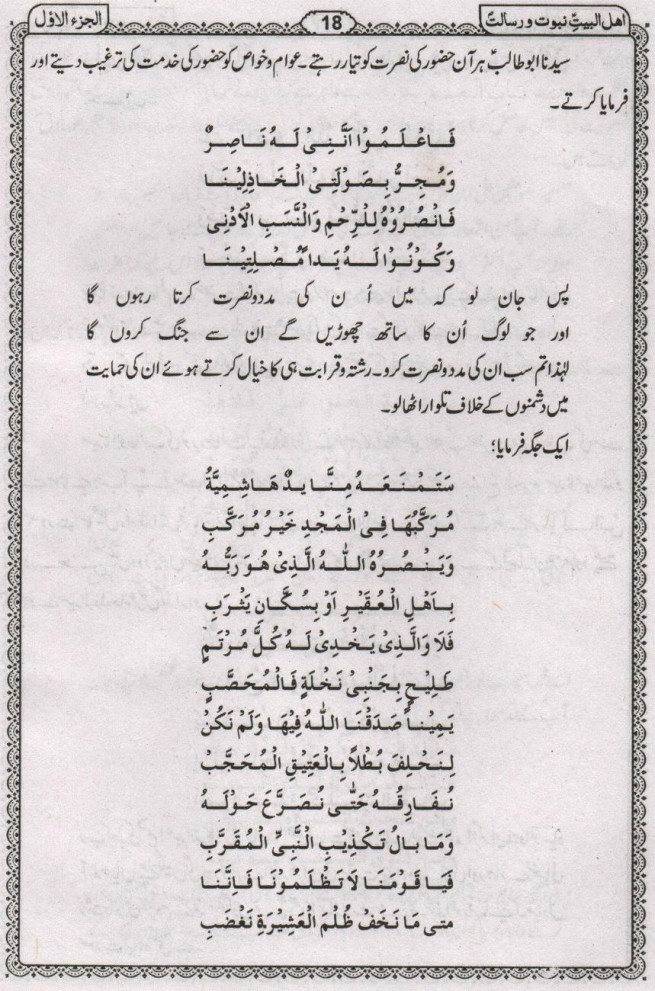 اهل البیتِ نبوت و رسالت
18
الجزء الاوّل
سیدنا ابو طالبؑ ہر آن حضور کی نصرت کو تیار رہتے۔ عوام و خواص کو حضور کی خدمت کی ترغیب دیتے اور
فرمایا کرتے۔
فَاعْلَمُوْا اَنَّنِیْ لَهُ نَاصِرٌ
وَمُجِرُّ بِصَوْلَتِیْ الْخَاذِلِیْنَا
فَانْصُرُوْهُ لِلرِّحْمِ وَالنَّسَبِ الْاَدْنٰی
وَكُوْنُوْا لَهُ يَداً مُصْلِتِيْنَا
پس جان لو کہ میں اُن کی مدد و نصرت کرتا رہوں گا
اور جو لوگ اُن کا ساتھ چھوڑیں گے ان سے جنگ کروں گا
لہٰذا تم سب ان کی مدد و نصرت کرو۔ رشتہ و قرابت ہی کا خیال کرتے ہوئے ان کی حمایت
میں دشمنوں کے خلاف تلوار اٹھا لو۔
ایک جگہ فرمایا؛
سَتَمْنَعُهُ مِنَّا يَدٌ هَاشِمِيَّةٌ
مُرَكَّبُهَا فِی الْمَجْدِ خَيْرُ مُرَكَّبِ
وَيَنْصُرُهُ اللهُ الَّذِیْ هُوَ رَبُّهُ
بِاَهْلِ الْعُقَيْرِ اَوْ بِسُكَّانِ يَثْرَبِ
فَلَا وَالَّذِیْ يَخْدِیْ لَهُ كُلُّ مُرْتَمٍ
طَلِيْحٍ بِجَنْبَیْ نَخْلَةٍ فَالْمُحَصَّبِ
يَمِيْناً صَدَقْنَا اللهُ فِيْهَا وَلَمْ نَكُنْ
لِنَحْلِفَ بُطْلًا بِالْعَتِيْقِ الْمُحَجَّبِ
نُفَارِقُهُ حَتّٰی نُصَرَّعَ حَوْلَهُ
وَمَا بَالُ تَكْذِيْبِ النَّبِیِّ الْمُقَرَّبِ
فَيَا قَوْمَنَا لَا تَظْلَمُوْنَا فَاِنَّنَا
متی مَا نَخَفْ ظُلْمَ الْعَشِيْرَةِ نَغْضَبِ